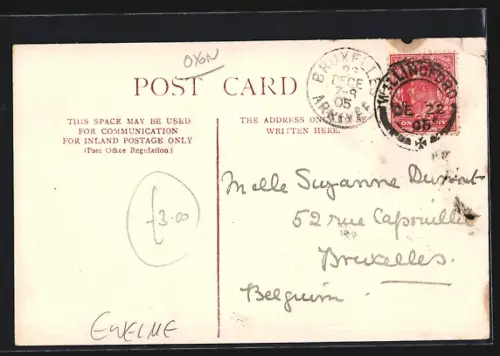 OXON
POST CARD
THIS SPACE MAY BE USED
FOR COMMUNICATION
FOR INLAND POSTAGE ONLY
(Post Office Regulation)
THE ADDRESS ONLY TO BE
WRITTEN HERE.
BRUXELLES
23
DECE
7-8
05
WALLINGFORD
DE 22
05
Melle Suzanne Dumont
52 rue Capouillet
Bruxelles.
Belgium
£3-00
EWELME